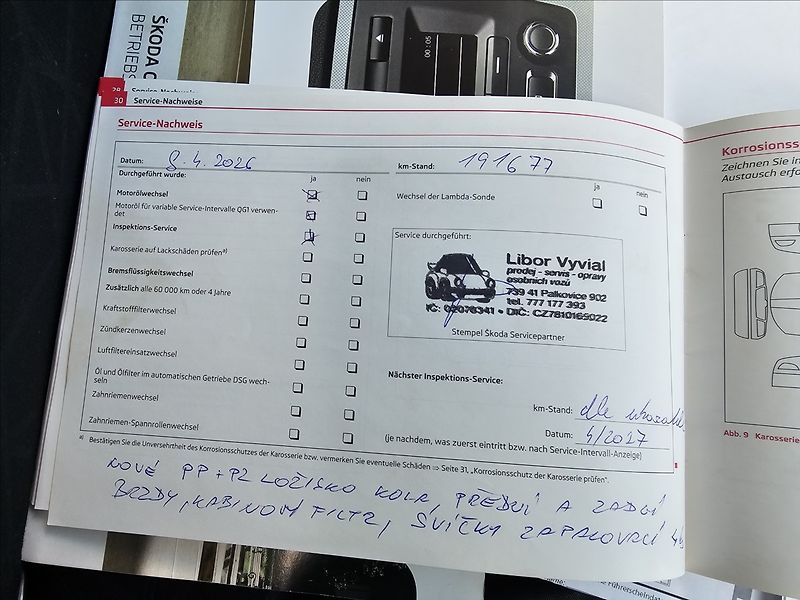 ŠKODA
BETRIEBS
00:05
28 Service-Nachweise
30 Service-Nachweise
Service-Nachweis
Datum: 8.4.2026
km-Stand: 191677
Durchgeführt wurde: ja nein
ja nein
Motorölwechsel
Motoröl für variable Service-Intervalle QG1 verwen-
det
Inspektions-Service
Karosserie auf Lackschäden prüfen a)
Bremsflüssigkeitswechsel
Zusätzlich alle 60 000 km oder 4 Jahre
Kraftstofffilterwechsel
Zündkerzenwechsel
Luftfiltereinsatzwechsel
Öl und Ölfilter im automatischen Getriebe DSG wech-
seln
Zahnriemenwechsel
Zahnriemen-Spannrollenwechsel
Wechsel der Lambda-Sonde
Service durchgeführt:
Libor Vyvial
prodej - servis - opravy
osobních vozů
739 41 Palkovice 902
tel. 777 177 393
IČ: 02070341 • DIČ: CZ7810169022
Stempel Škoda Servicepartner
Nächster Inspektions-Service:
km-Stand: dle
Datum: 4/2027
(je nachdem, was zuerst eintritt bzw. nach Service-Intervall-Anzeige)
a) Bestätigen Sie die Unversehrtheit des Korrosionsschutzes der Karosserie bzw. vermerken Sie eventuelle Schäden ⇒ Seite 31, „Korrosionsschutz der Karosserie prüfen“.
NOVÉ PP + PZ LOŽISKO KOLA, PŘEDNÍ A ZADNÍ
BRZDY, KABINOVÝ FILTR, SVÍČKY ZAPALOVACÍ
Korrosionss
Zeichnen Sie in
Austausch erfo
Abb. 9 Karosserie